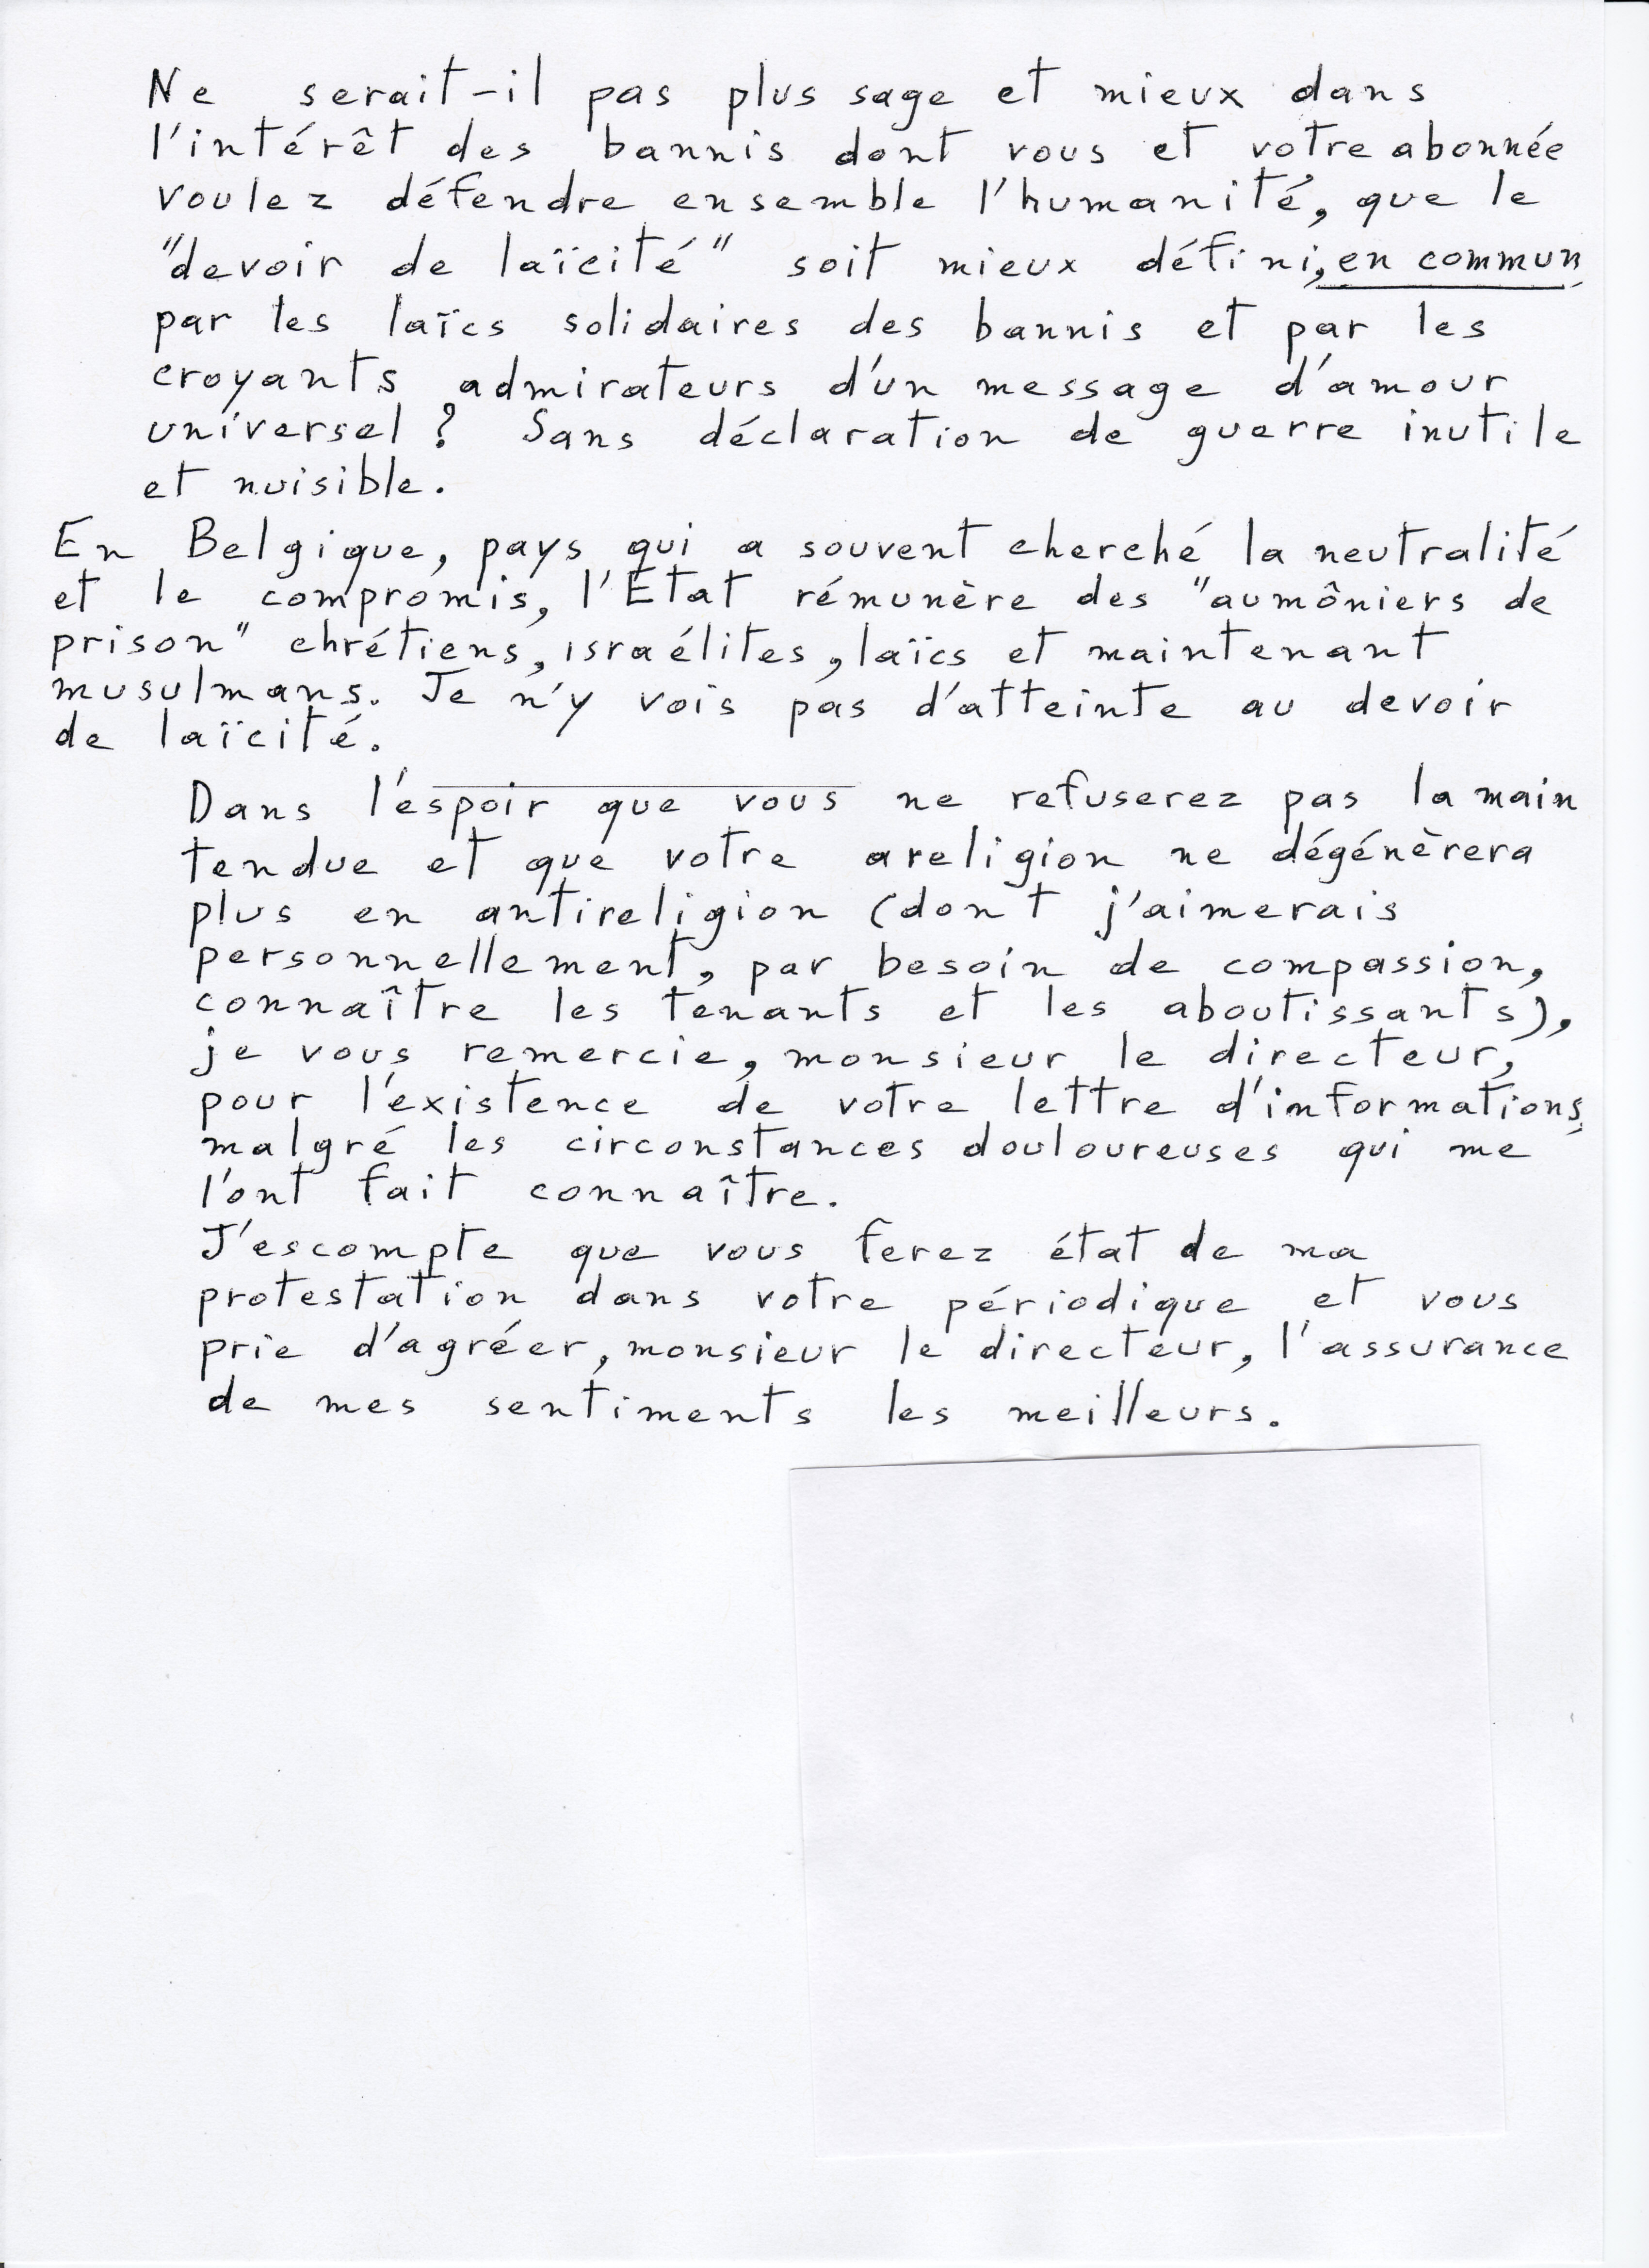 Ne serait-il pas plus sage et mieux dans
l'intérêt des bannis dont vous et votre abonnée
voulez défendre ensemble l'humanité, que le
"devoir de laïcité" soit mieux défini, en commun,
par les laïcs solidaires des bannis et par les
croyants admirateurs d'un message d'amour
universel ? Sans déclaration de guerre inutile
et nuisible.
En Belgique, pays qui a souvent cherché la neutralité
et le compromis, l'Etat rémunère des "aumôniers de
prison" chrétiens, israélites, laïcs et maintenant
musulmans. Je n'y vois pas d'atteinte au devoir
de laïcité.
Dans l'espoir que vous ne refuserez pas la main
tendue et que votre areligion ne dégénèrera
plus en antireligion (dont j'aimerais
personnellement, par besoin de compassion,
connaître les tenants et les aboutissants),
je vous remercie, monsieur le directeur,
pour l'existence de votre lettre d'informations,
malgré les circonstances douloureuses qui me
l'ont fait connaître.
J'escompte que vous ferez état de ma
protestation dans votre périodique et vous
prie d'agréer, monsieur le directeur, l'assurance
de mes sentiments les meilleurs.